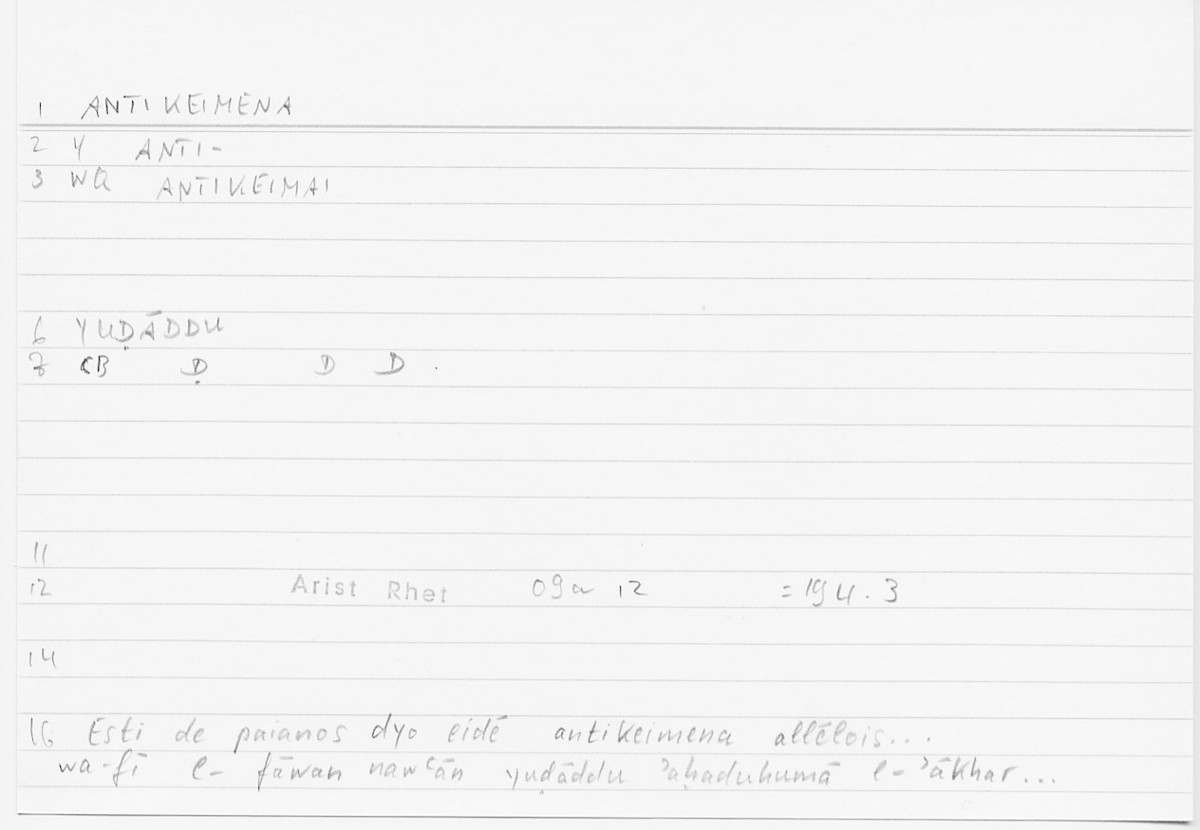 1 ANTIKEIMENA
2 Y ANTI-
3 WA ANTIKEIMAI
6 YUḌĀDDU
7 CB Ḍ D D .
11
12 Arist Rhet 09a 12 = 194.3
14
16 Esti de paianos dyo eidē antikeimena allēlois...
wa-fī l- fāwan nawʿān yuḍāddu ʾaḥaduhumā l-ʾākhar...